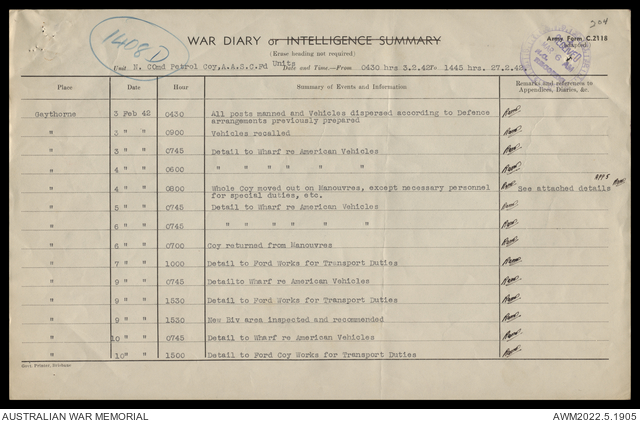 204
1408 D
WAR DIARY or INTELLIGENCE SUMMARY
Army Form C.2118
(Erase heading not required)
Unit N. COmd Petrol Coy, A.A.S.C. Fd Units Date and Time—From 0430 hrs 3.2.42 To 1445 hrs. 27.2.42.
Place Date Hour Summary of Events and Information Remarks and references to Appendices, Diaries, &c.
Gaythorne 3 Feb 42 0430 All posts manned and Vehicles dispersed according to Defence
arrangements previously prepared
" 3 " " 0900 Vehicles recalled
" 3 " " 0745 Detail to Wharf re American Vehicles
" 4 " " 0600 " " " " " "
" 4 " " 0800 Whole Coy moved out on Manouvres, except necessary personnel See attached details APP 5
for special duties, etc.
" 5 " " 0745 Detail to Wharf re American Vehicles
" 6 " " 0745 " " " " " "
" 6 " " 0700 Coy returned from Manouvres
" 7 " " 1000 Detail to Ford Works for Transport Duties
" 9 " " 0745 Detailto Wharf re American Vehicles
" 9 " " 1530 Detail to Ford Works for Transport Duties
" 9 " " 1530 New Biv area inspected and recommended
" 10 " " 0745 Detail to Wharf re American Vehicles
" 10" " 1500 Detail to Ford Coy Works for Transport Duties
Govt. Printer, Brisbane
AUSTRALIAN WAR MEMORIAL AWM2022.5.1905